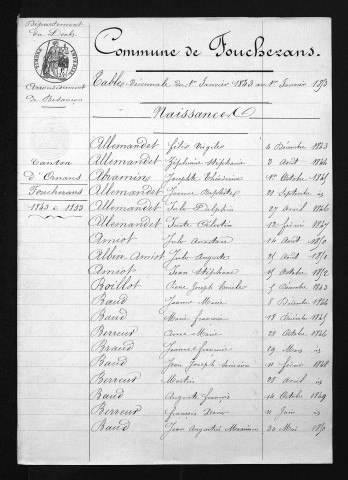 Département
du Doubs.
TIMBRE IMPERIAL
Arrondissement
de Besançon
Canton
d'Ornans
Foucherans
1843 à 1853
Commune de Foucherans.
Tables Décennale du 1er Janvier 1843 au 1er Janvier 1853
Naissances
Allemandet 4 Décembre 1843
Allemandet Zéphirin Stéphanie 3 Août 1844
Abramine Joseph 1er Octobre 1845
Allemandet Jeanne Baptiste 21 Septembre is
Allemandet Jules Delphin 27 Avril 1846
Allemandet Juste Célestin 12 février 1847
Amiot Jules 14 Août 1850
Albin Amiot Jules Auguste 25 Août 1850
Amiot Jean Stéphane 15 Octobre 1852
Boillot Joseph 5 Décembre 1843
Baud Jeanne Marie 8 Décembre 1844
Baud Marie 18 Décembre 1845
Berreur Marie 22 Octobre 1846
Braud Jeanne 29 Mars is
Baud Jean Joseph 11 février 1848
Berreur Martin 28 Avril is
Baud Auguste François 14 Octobre 1849
Berreur François 11 Juin is
Baud Jean Augustin 20 Mai 1850